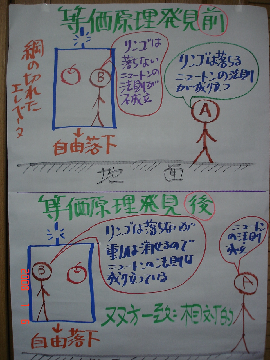 等価原理発見前
綱の切れた
エレベータ
リンゴは
落ちない
ニュートンの
法則が
不成立
B
リンゴは落ちる
ニュートンの法則
が成り立つ
A
自由落下
等価原理発見後
リンゴは落ちないが
重力は消せるので
ニュートンの法則は
成り立っている
B
ニュートン
の法則
A
自由落下
双方一致:相対的